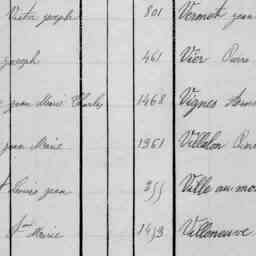 Victor joseph 801 Vermot jean
joseph 461 Vier Pierre
jean Marie Charles 1468 Vignes
jean Marie 1961 Villalon
Louis jean 355 Ville au mo
Marie 1453 Villeneuve